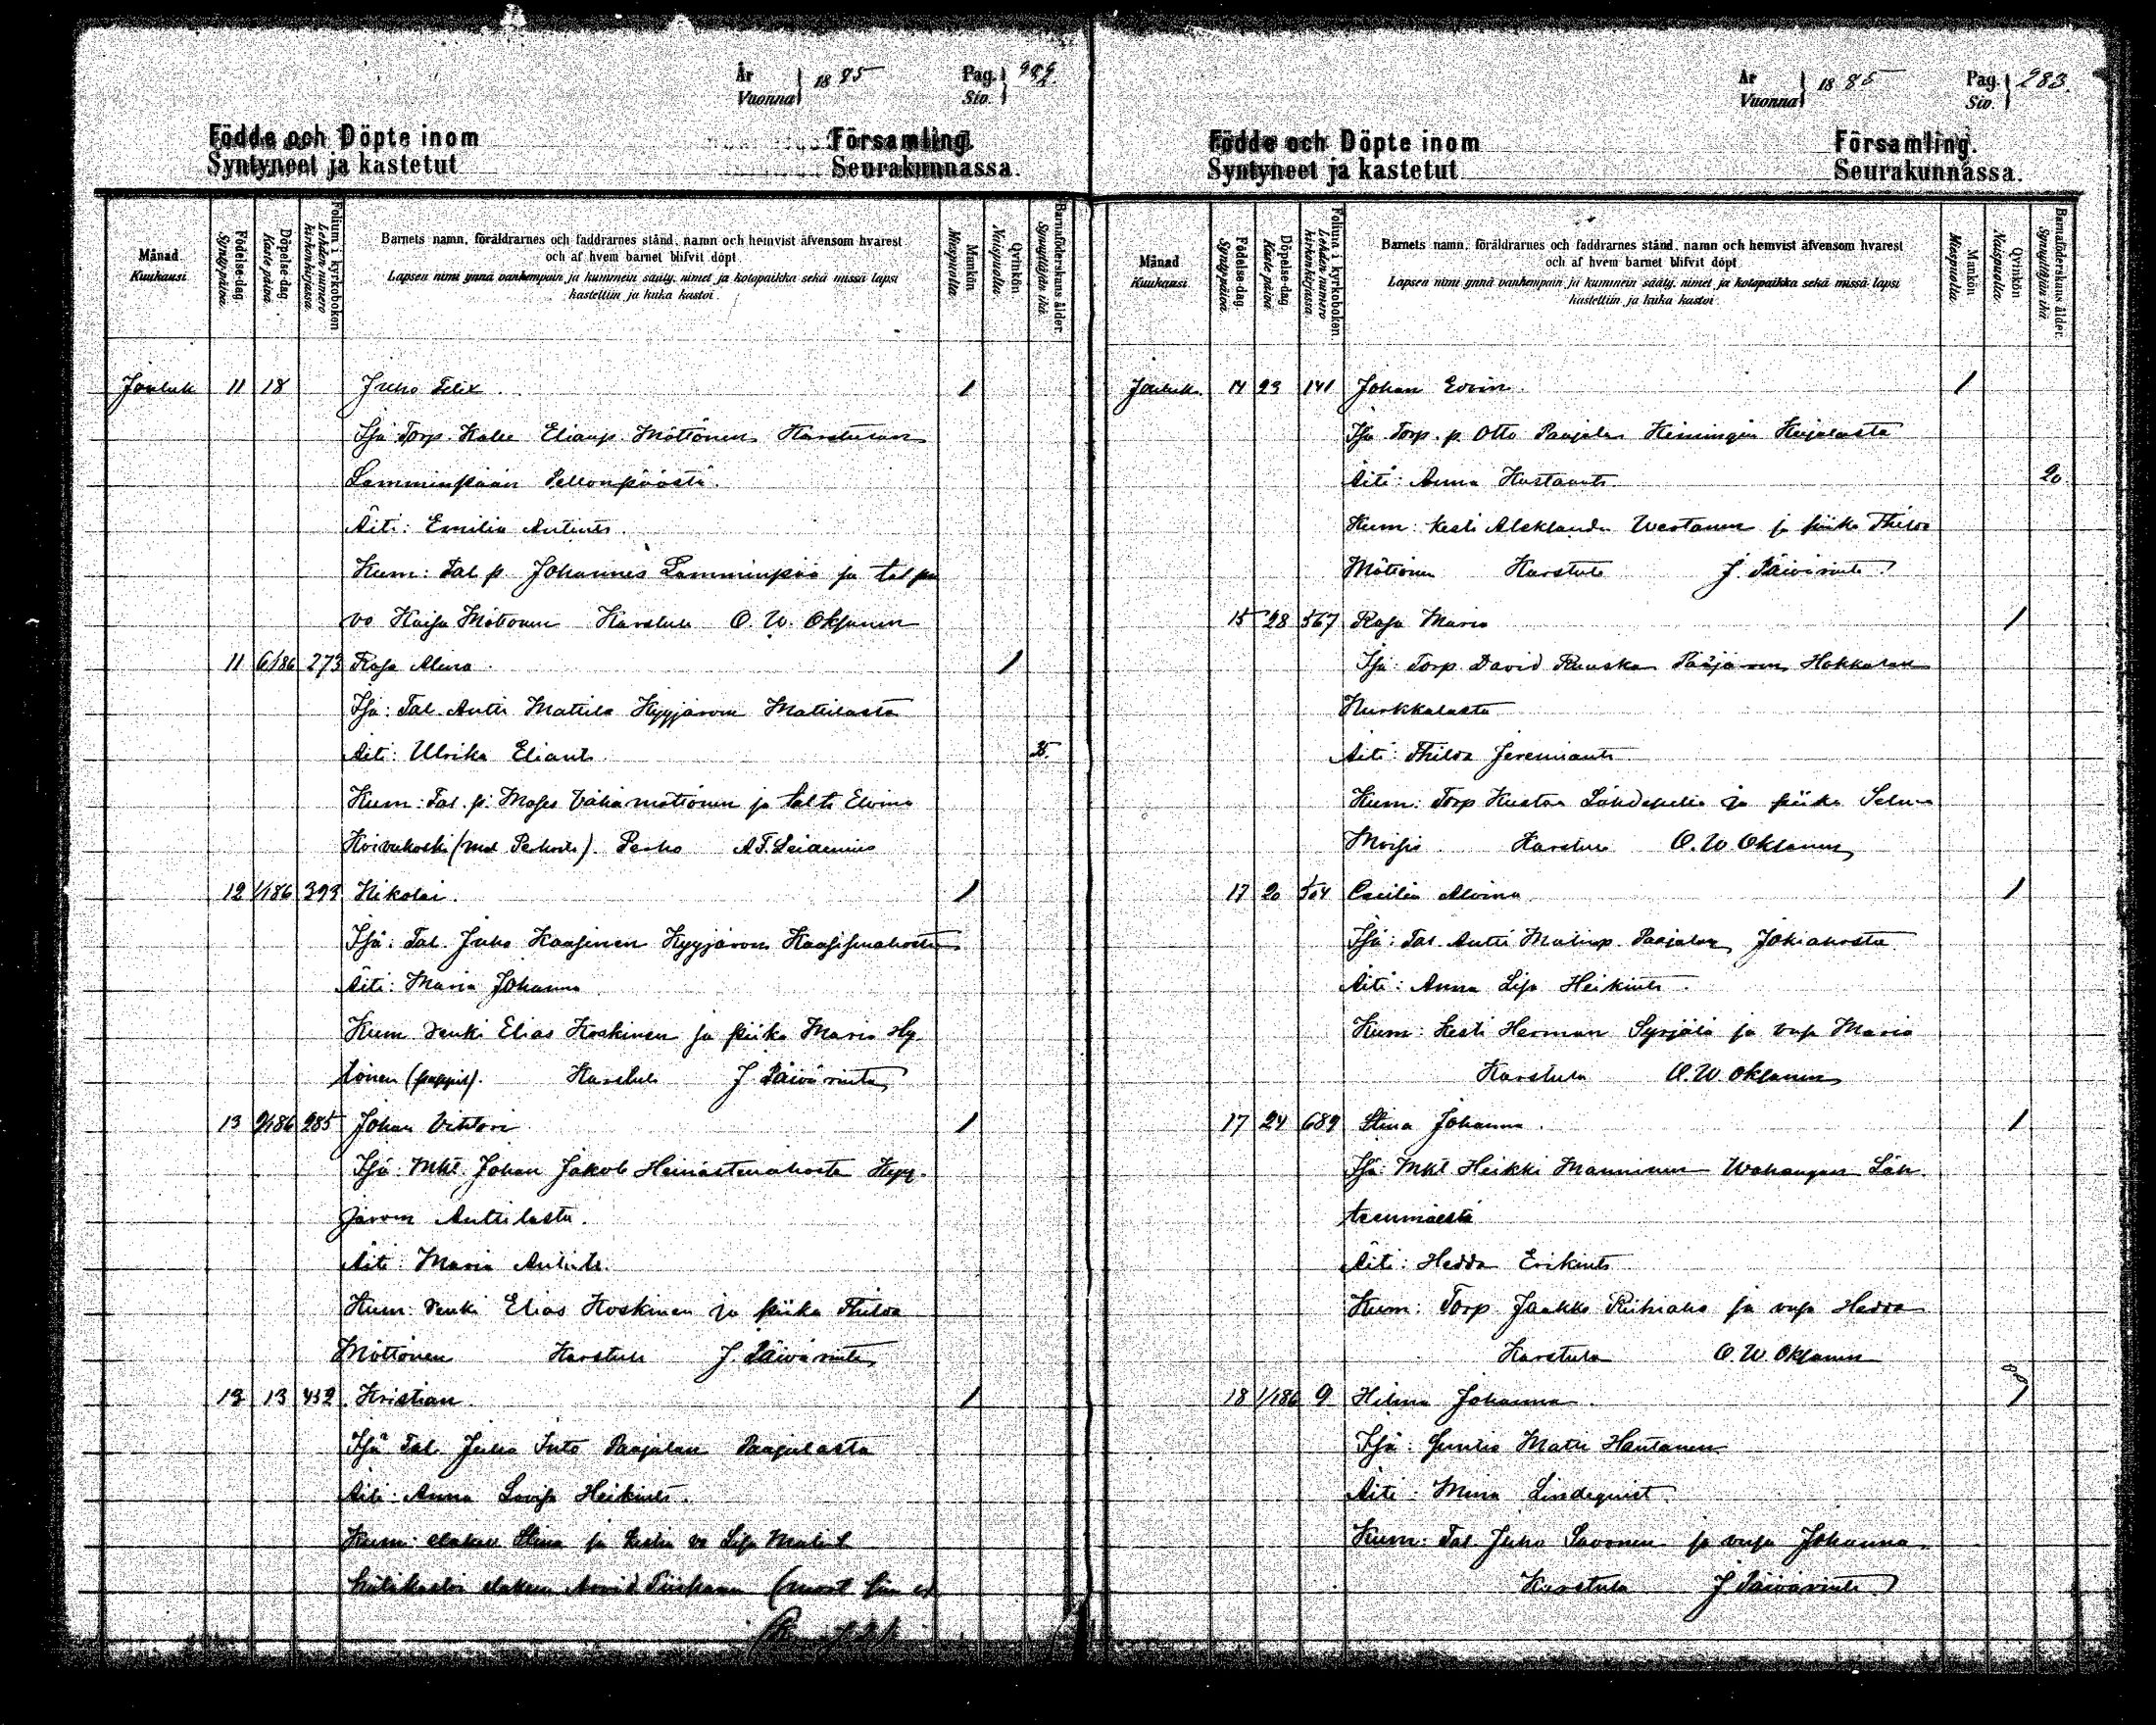 År
Vuonna
1885
Pag.
Siv.
282.
Födde och Döpte inom
Församling.
Syntyneet ja kastetut
Seurakunnassa.
Månad
Kuukausi
Födelse-dag.
Syntypäivä.
Döpelse-dag.
Kaste päivä.
Folium i kyrkoboken.
Lehden numero kirkonkirjassa.
Barnets namn, föräldrarnes och faddrarnes stånd, namn och hemvist äfvensom hvarest
och af hvem barnet blifvit döpt.
Lapsen nimi ynnä vanhempain ja kummein sääty, nimet ja kotopaikka sekä missä lapsi
kastettiin ja kuka kastoi.
Mankön
Miespuolia.
Qvinkön
Naispuolia.
Barnaföderskans ålder.
Synnyttäjän ikä.
Jouluk 11 18 Juho Felix. 1
Isä Torp. Kalle Eliasp. Möttönen Karstulan
Lamminpään Pellonpäästä.
Äiti: Emilia Antint.
Kum: Tal. p. Johannes Lamminpää ja tal. 
vo Kaisa Möttönen Karstula O. W. Oksanen
11 6/1 86 273 Rosa Alina. 1
Isä: Tal. Antti Mattila Kyyjärven Mattilasta
Äiti: Ulrika Eliant. 35.
Kum: Tal. p. Moses Vähämöttönen ja tal. t. Elvina
Koivukoski Perho
12 1/1 86 393 Nikolai. 1
Isä: Tal. Juho Kaasinen Kyyjärven
Äiti: Maria Johanna
Kum Renki Elias Koskinen ja piika Maria Hy
tönen (pappil). Karstula J. Päivärinta
13 2/1 86 285 Johan Vihtori 1
Isä: Mkl. Johan Jakob Heinästenahosta Kyy.
järven Anttilasta.
Äiti: Maria Antint.
Kum: Renki Elias Koskinen ja piika Thilda
Möttönen Karstula J. Päivärinta
13 13 432 Kristian 1
Isä Tal. Juho Into Paajalan Paajalasta
Äiti: Anna Lovisa Heikint.
Kum: Stina ja Lisa Matint
hätäkastoi Arvid
År
Vuonna
1885
Pag.
Siv.
283.
Födde och Döpte inom
Församling.
Syntyneet ja kastetut
Seurakunnassa.
Månad
Kuukausi
Födelse-dag.
Syntypäivä.
Döpelse-dag.
Kaste päivä.
Folium i kyrkoboken.
Lehden numero kirkonkirjassa.
Barnets namn, föräldrarnes och faddrarnes stånd, namn och hemvist äfvensom hvarest
och af hvem barnet blifvit döpt.
Lapsen nimi ynnä vanhempain ja kummein sääty, nimet ja kotopaikka sekä missä lapsi
kastettiin ja kuka kastoi.
Mankön
Miespuolia.
Qvinkön
Naispuolia.
Barnaföderskans ålder.
Synnyttäjän ikä.
Jouluk. 14 23 141 Johan Edvin. 1
Isä Torp. p. Otto Paajalan
Äiti: Anna Kustaant. 20
Kum: Kesti Aleksander Westanen ja piika Thilda
Möttönen Karstula J. Päivärinta
15 28 567 Rosa Maria 1
Isä: Torp. David Ruuska Pääjärven Hokkalan
Hurkkalasta
Äiti: Thilda Jeremiant.
Kum: Torp. Kustaa Lähdepelto ja piika Selma
Karstula O. W. Oksanen
17 20 504 Cecilia Alvina 1
Isä: Tal. Antti Matinp. Paajalan Jokiahosta
Äiti: Anna Lisa Heikint.
Kum: Kesti Herman Syrjälä ja vsa Maria
Karstula O. W. Oksanen
17 24 689 Stina Johanna. 1
Isä: Mkl Heikki Manninen Wahangan Läh
teenmäestä
Äiti: Hedda Erikint.
Kum: Torp. Jaakko Riihiaho ja vsa Hedda
Karstula O. W. Oksanen
18 1/1 86 9 Hilma Johanna. 1
Isä: Matti Hautanen
Äiti: Mina Lindequist.
Kum: Tal. Juho Savonen ja vsa Johanna.
Karstula J. Päivärinta